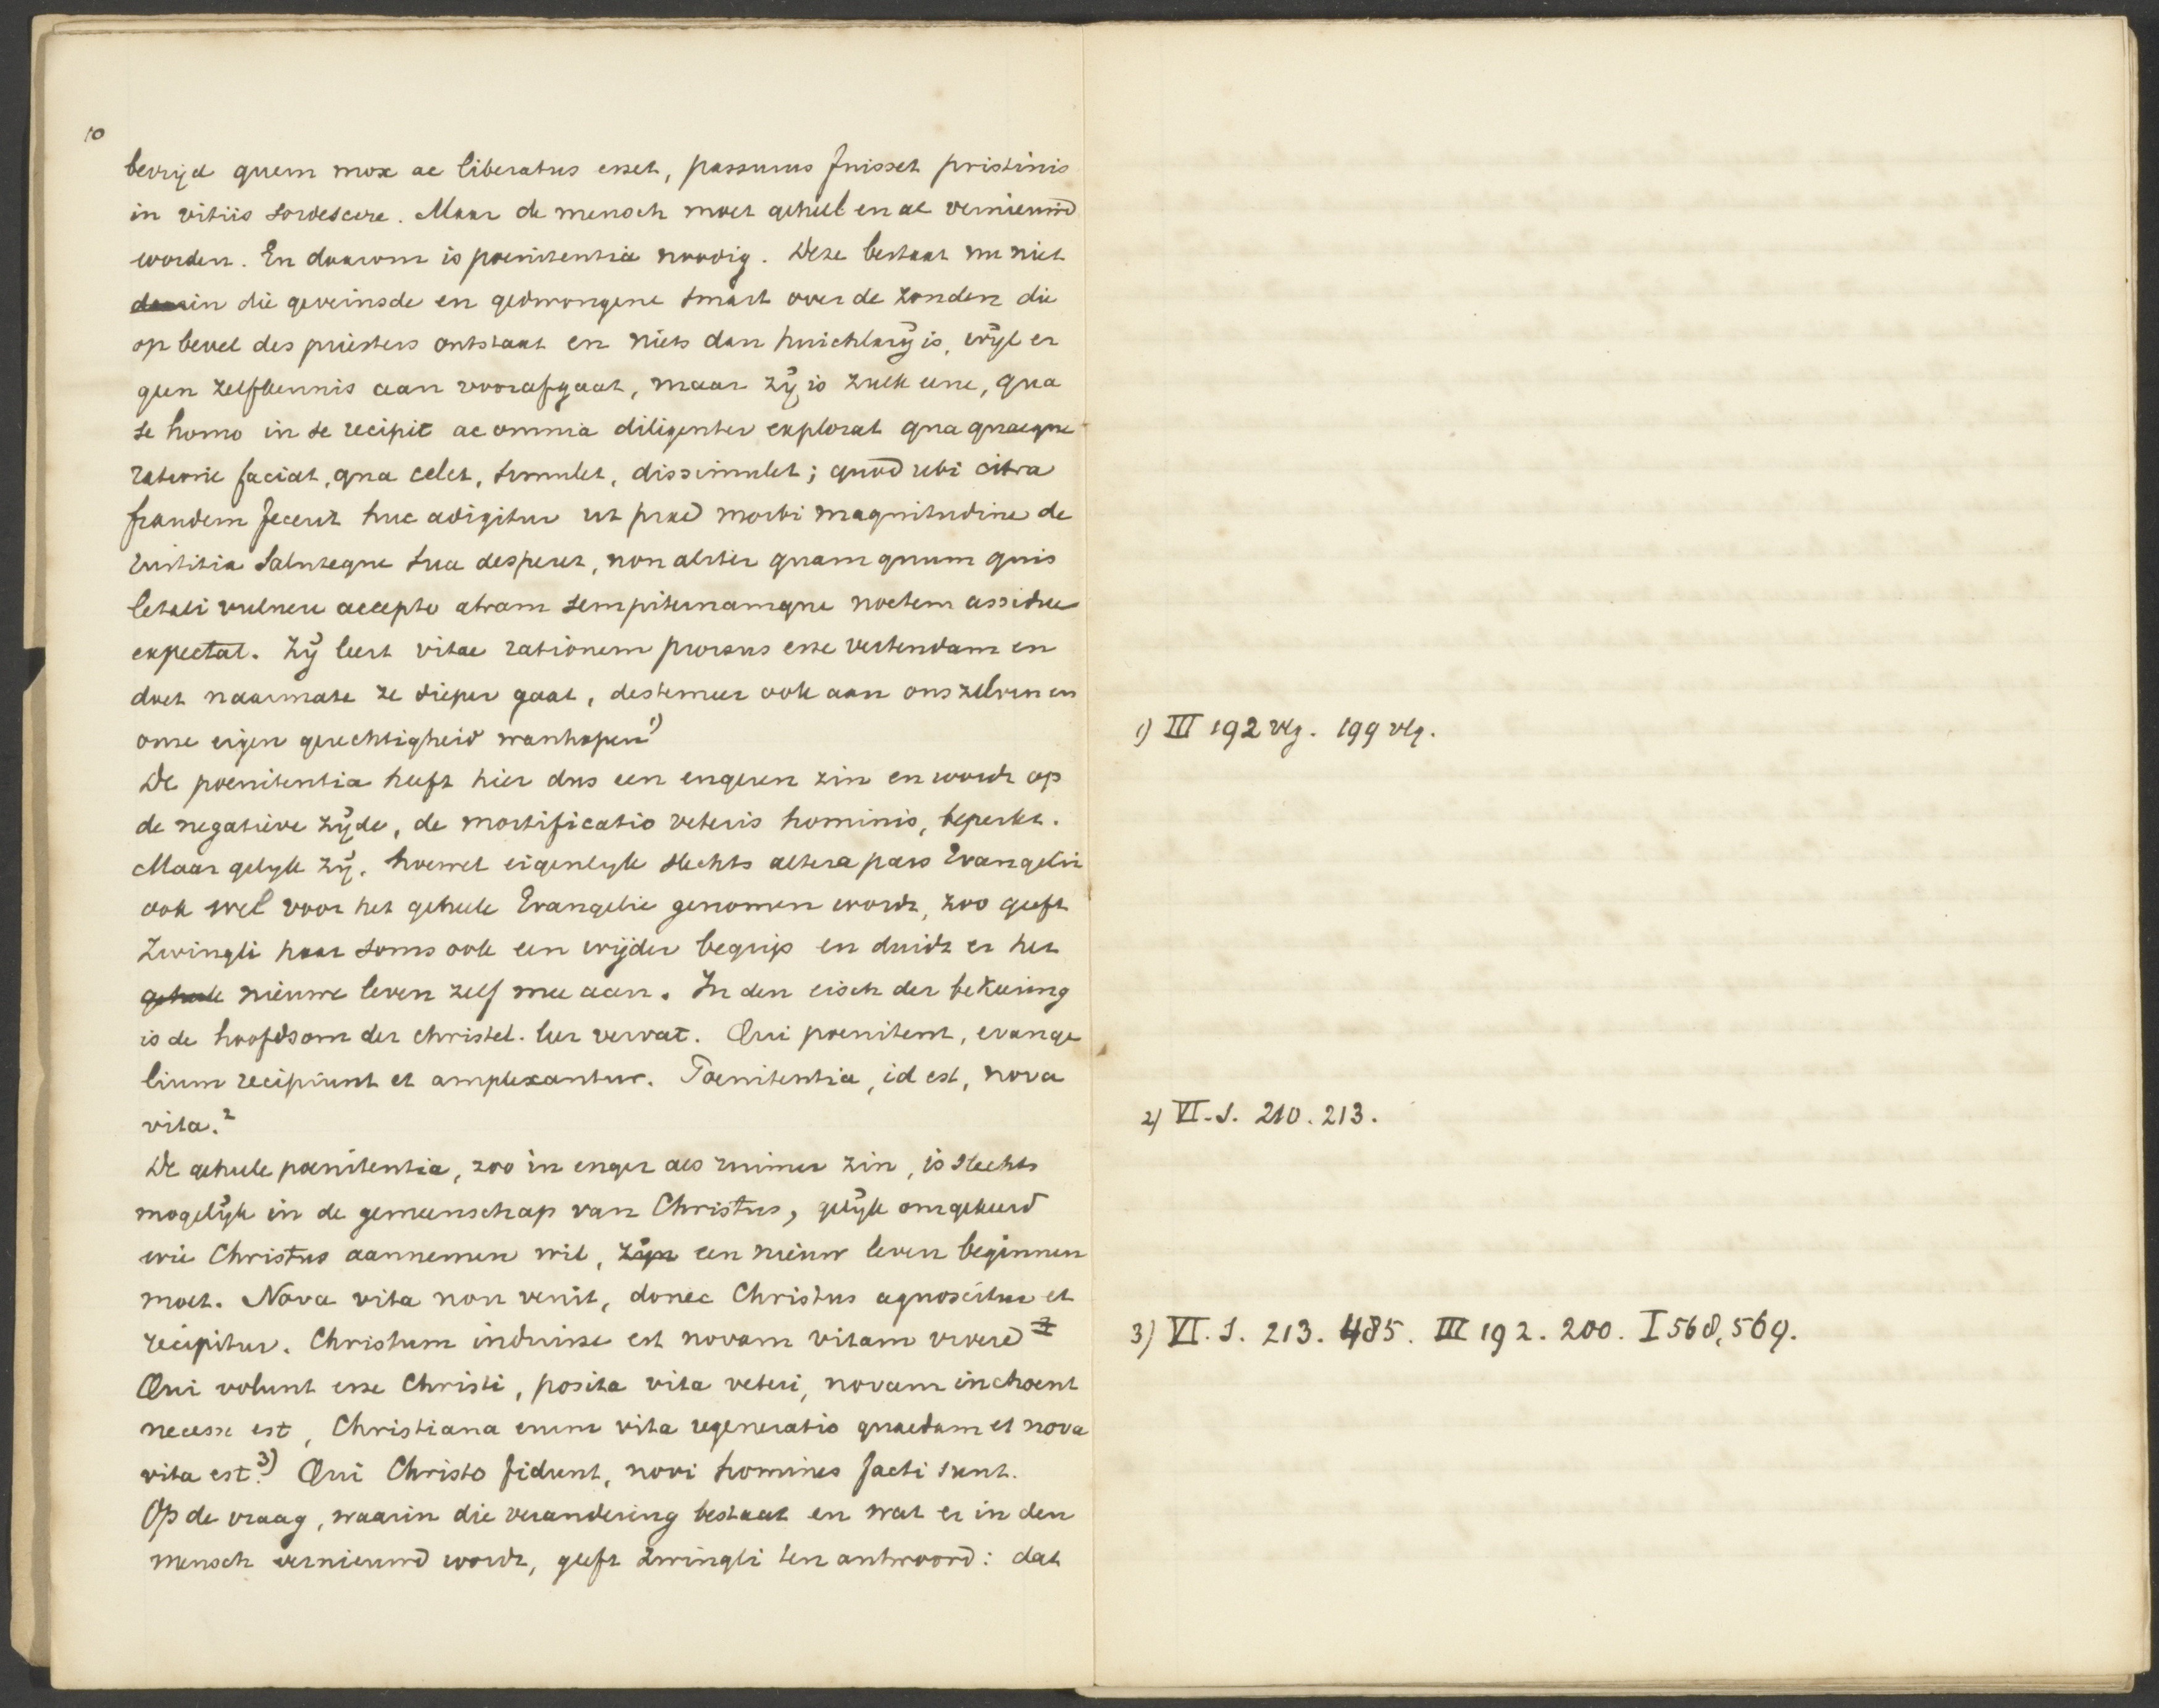 10
bevrijd quem mox ac liberatus esset, passurus fuisset pristinis
in vitiis sordescere. Maar de mensch moet geheel en al vernieuwd
worden. En daarom is poenitentia noodig. Deze bestaat nu niet
daarin die geveinsde en gedwongene smart over de zonden die
op bevel des priesters ontstaat en niets dan huichlarij is, wijl er
geen zelfkennis aan voorafgaat, maar zij is zulk eene, qua
se homo in se recipit ac omnia diligenter explorat qua quaeque
ratione faciat, qua celet, simulet, dissimulet; quod ubi citra
fraudem fecerit huc adigitur ut prae morbi magnitudine de
iustitia saluteque sua desperet, non aliter quam quum quis
letali vulnere accepto atram sempiternamque noctem assidue
expectat. Zij leert vitae rationem prorsus esse vertendam en
doet naarmate ze dieper gaat, destemeer ook aan ons zelven en
onze eigen gerechtigheid wanhopen 1)
De poenitentia heeft hier dus een engeren zin en wordt op
de negatieve zijde, de mortificatio veteris hominis, beperkt.
Maar gelijk zij, hoewel eigenlijk slechts altera pars Evangelii
ook wel voor het geheele Evangelie genomen wordt, zoo geeft
Zwingli haar soms ook een wijder begrip en duidt er het
geheele nieuwe leven zelf mee aan. In den eisch der bekeering
is de hoofdsom der christel. leer vervat. Qui poenitent, evange
lium recipiunt et amplexantur. Poenitentia, id est, nova
vita. 2
De geheele poenitentia, zoo in enger als ruimer zin, is slechts
mogelijk in de gemeenschap van Christus, gelijk omgekeerd
wie Christus aannemen wil, zijn een nieuw leven beginnen
moet. Nova vita non venit, donec Christus agnoscitur et
recipitur. Christum induisse est novam vitam vivere
Qui volunt esse Christi, posita vita veteri, novam inchoent
necesse est, Christiana enim vita regeneratio quaedam et nova
vita est. 3) Qui Christo fidunt, novi homines facti sunt.
Op de vraag, waarin die verandering bestaat en wat er in den
mensch vernieuwd wordt, geeft Zwingli ten antwoord: dat
1) III 192 vlg. 199 vlg.
2) VI. I. 210. 213.
3) VI. I. 213. 485. III 192. 200. I 568, 569.